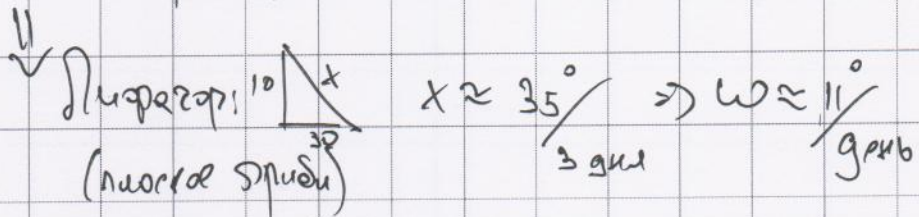 ⇓ Пифагор: 10 x 30 x ≈ 35°/3 дня ⇒ ω ≈ 11°/день
(плоское прибл)